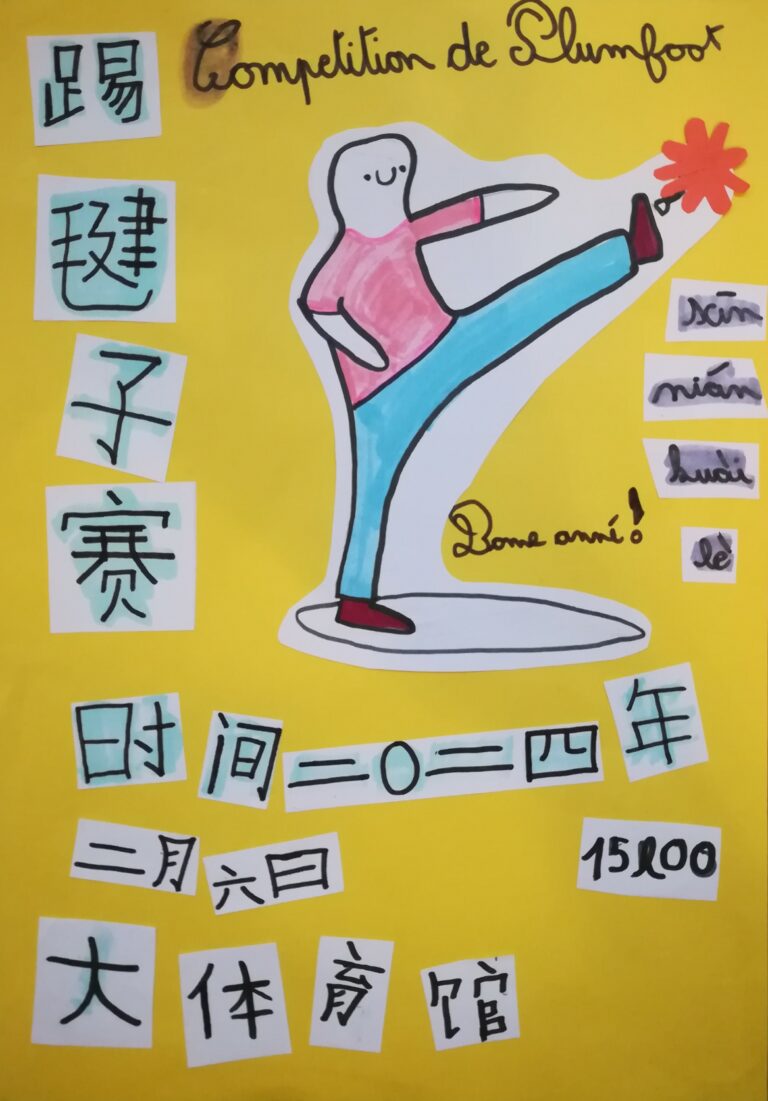 Competition de Plumfoot
踢毽子赛
xīn
nián
kuài
lè
Bonne anné!
时间二〇二四年
二月六日 15h00
大体育馆